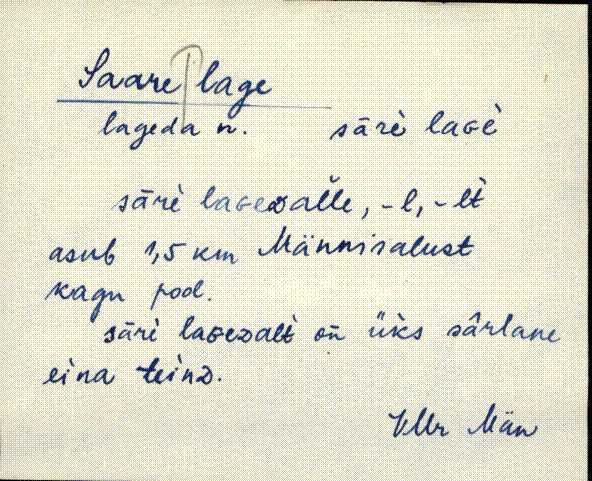 Saare lage
lageda n. särè laɢè
särè laɢeᴅalle, -l, -lt
asub 1,5 km Männisalust
kagu pool.
särè laɢeᴅalt on üks sârlane
eina teinᴅ.
VMr Män